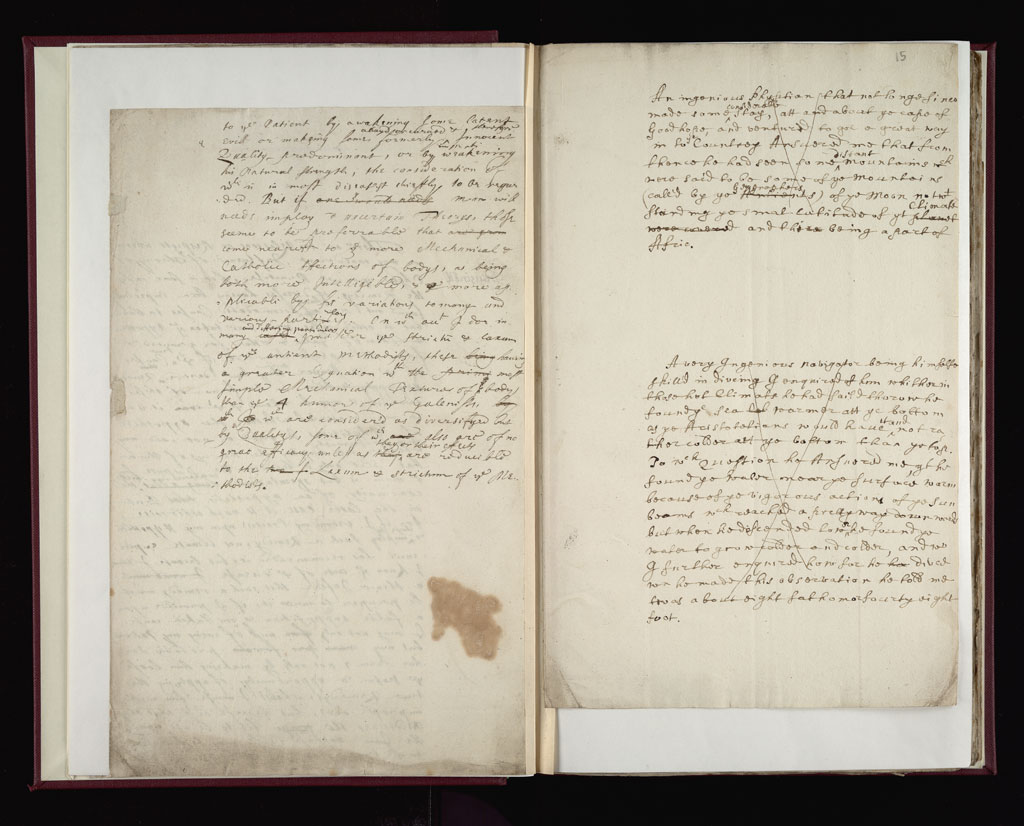 to ye Patient by awakening some latent
evil or making some formerly Innocent
Quality predominant, or by weakening
his Natural strength, the consideration of
wch is in most diseases chiefly to be regar
ded. But if one would needs Men will
needs imploy uncertain Theorys, those
seeme to be preferrable that
come nearest to ye more Mechanical &
Catholic Affections of bodys, as being
both more Intelligible, & more ap
plicable by his variations to many and
various particulars. On wch acct I do in
and differing particulars
many prefer ye Strictu & Laxum
of ye antient Methodists, these being having
a greater æquation wth the most
simple Mechanical Textures of bodys
than ye 4 humors of ye Galenists,
wch are considered as diversifyed but
by Qualitys, some of wch also are of no
they or their effects
great efficacy unless as they are reducible
to the Laxum & strictum of ye Me
thodists.
15
An ingenious Phisitian that not longe since
considerable
made some stay, att and about ye cape of
Good hope, and ventured to goe a great way
in to ye Countrey Answered me that from
distant
thence he had seen some Mountains wch
were said to be some of ye Mountains
Geographers
(called by ye Antients) of ye Moon notwt
Climate
standing ye small Latitude of yt planet
were covered and there being a part of
Afric.
A very Ingenious navigator being himselfe
skilled in diveing I enquired of him whither in
those hot Climats he had said thorow he
found ye Sea warmer att ye bottom
stand
as ye Aristotelians would have not ra
ther colder att ye bottom than ye top.
To wch Question he Answered me yt he
found ye water near ye surface warm
because of ye vigorous actions of ye sun
beams wch reached a pretty way down wards
but when he descended lower he found ye
water to grow colder and colder, and wn
I further enquired how far he had dived
wn he made this observation he told me
twas about eight fathom or fourty eight
foot.